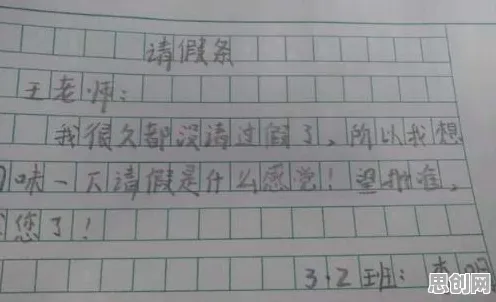 请假条
王老师：
我很久都没请过假了，所以我想
味一下请假是什么感觉！望批准，
您了！
3.2班：
思创网